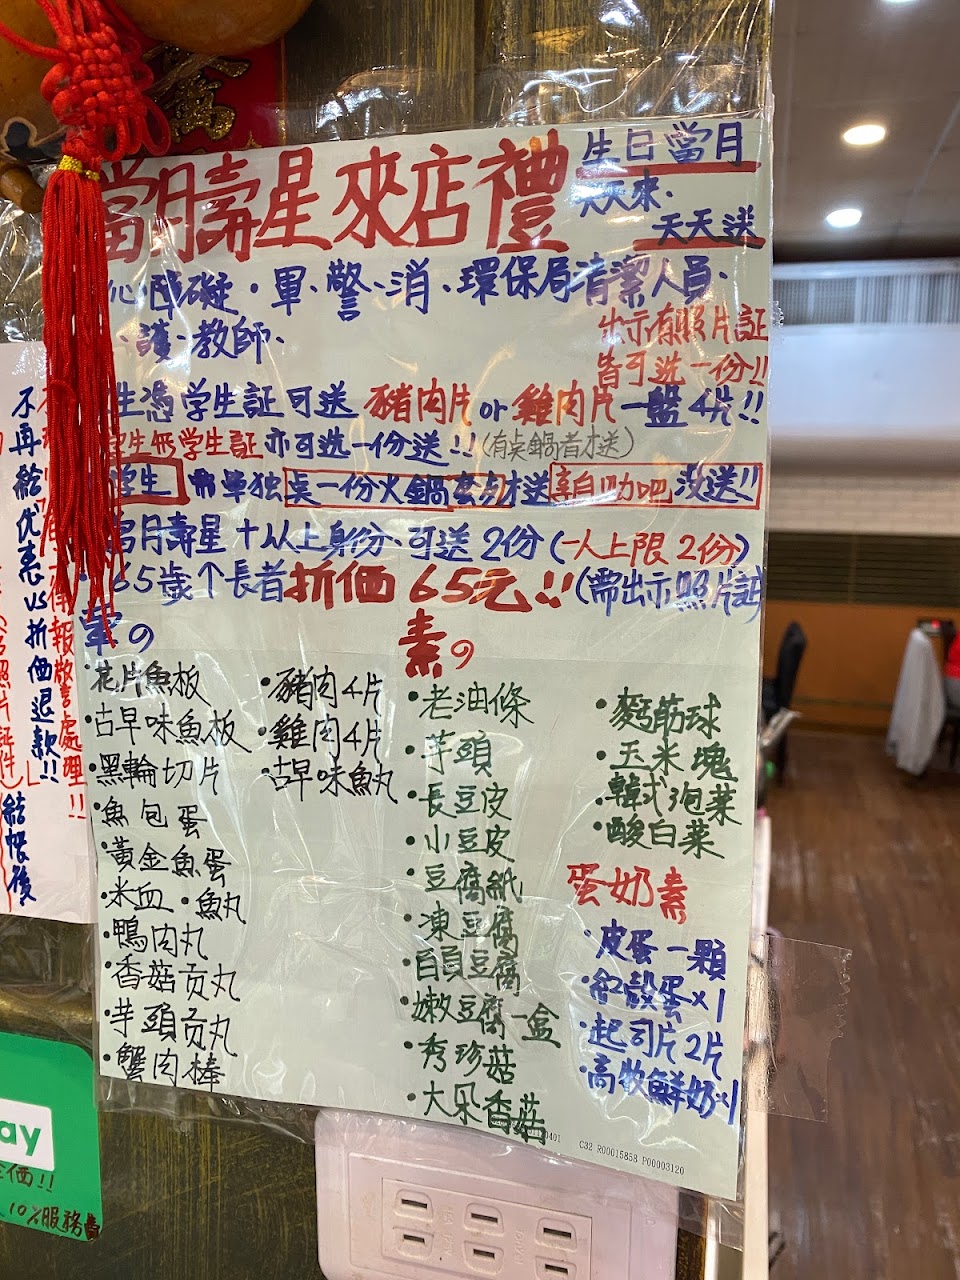 當月壽星來店禮
生日當月
天天來·
天天送
心·障礙·軍、警、消、環保局清潔人員、
·護·教師·
出示有照片証
皆可选一份!!
生憑学生証可送 豬肉片 or 雞肉片 一盤4片!!
学生無学生証 亦可选一份送!! (有桌鍋者才送)
学生 單独桌一份火鍋 才送 自助吧 没送!!
當月壽星 十以上身份、可送2份 (一人上限2份)
65歲个長者 折価65元!! (需出示照片証)
葷の
·花片魚板
·古早味魚板
·黑輪切片
·魚包蛋
·黃金魚蛋
·米血 ·魚丸
·鴨肉丸
·香菇贡丸
·芋頭贡丸
·蟹肉棒
·豬肉4片
·雞肉4片
·古早味魚丸
素の
·老油條
·芋頭
·長豆皮
·小豆皮
·豆腐紙
·凍豆腐
·百頁豆腐
·嫩豆腐一盒
·秀珍菇
·大朵香菇
·麵筋球
·玉米塊
·韓式泡菜
·酸白菜
蛋奶素
·皮蛋一顆
·紅殼蛋x1
·起司片2片
·高牧鮮奶x1
C32 R00015858 P00003120
不再給优惠vs折価退款!!
報警處理!!
照片証件
結帳後
ay
価!!
10%服務費